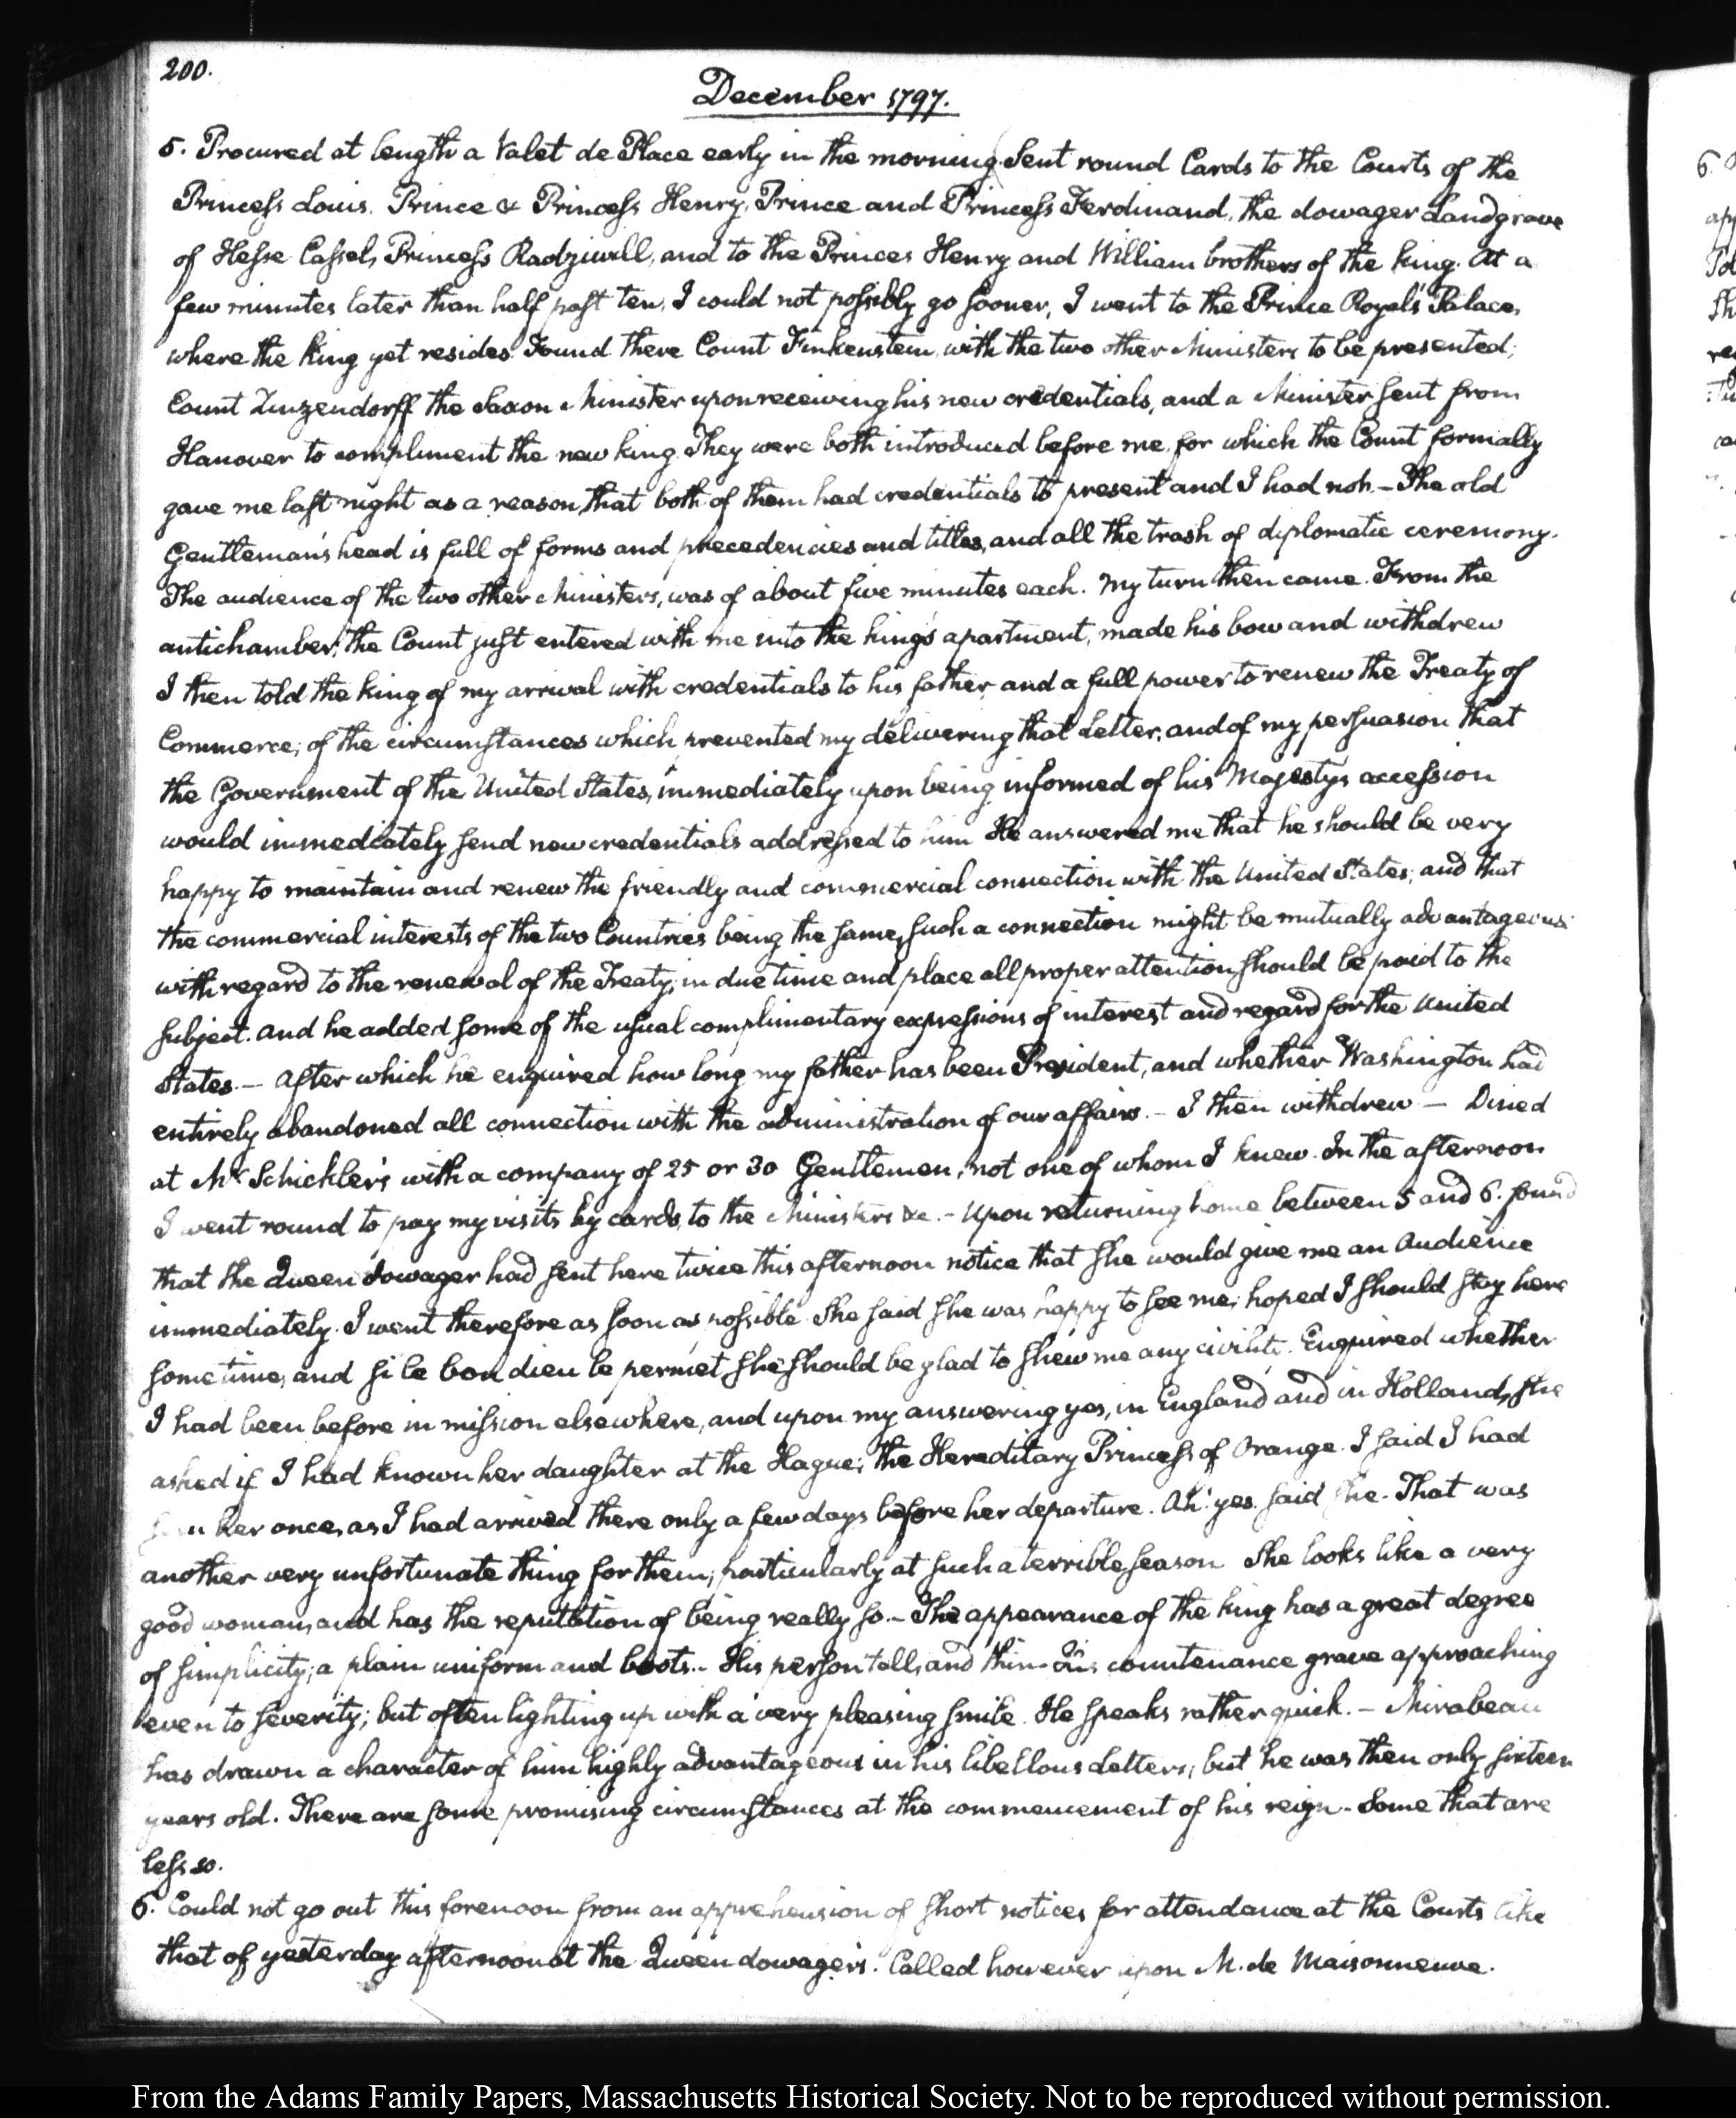 200.
December 1797.
5. Procured at length a Valet de Place early in the morning. Sent round Cards to the Courts of the
Princess Louis. Prince & Princess Henry, Prince and Princess Ferdinand, the dowager Landgrave
of Hesse Cassel, Princess Radziwill, and to the Princes Henry and William brothers of the king. At a
few minutes later than half past ten, I could not possibly go sooner, I went to the Prince Royal's Palace,
where the King yet resides. Found there Count Finkenstein, with the two other Ministers to be presented;
Count Zinzendorff the Saxon Minister upon receiving his new credentials, and a Minister sent from
Hanover to compliment the new king. They were both introduced before me, for which the Count formally
gave me last night as a reason, that both of them had credentials to present and I had not. — The old
Gentleman's head is full of forms and precedencies and titles, and all the trash of diplomatic ceremony.
The audience of the two other Ministers, was of about five minutes each. My turn then came. From the
antichamber, the Count just entered with me into the king's apartment, made his bow and withdrew
I then told the king of my arrival with credentials to his father, and a full power to renew the Treaty of
Commerce; of the circumstances which prevented my delivering that Letter, and of my persuasion that
the Government of the United States, immediately upon being informed of his Majesty's accession
would immediately send new credentials addressed to him He answered me that he should be very
happy to maintain and renew the friendly and commercial connection with the United States; and that
the commercial interests of the two Countries being the same, such a connection might be mutually advantageous
with regard to the renewal of the Treaty, in due time and place all proper attention should be paid to the
subject. And he added some of the usual complimentary expressions of interest and regard for the United
States. — After which he enquired how long my father has been President, and whether Washington had
entirely abandoned all connection with the administration of our affairs. — I then withdrew — Dined
at Mr. Schickler's with a company of 25 or 30 Gentlemen, not one of whom I knew. In the afternoon
I went round to pay my visits by cards, to the Ministers &c. — Upon returning home between 5 and 6. found
that the Queen dowager had sent here twice this afternoon notice that she would give me an Audience
immediately. I went therefore as soon as possible. She said she was happy to see me; hoped I should stay here
sometime, and si le bon dieu le permet she should be glad to shew me any civility. Enquired whether
I had been before in mission elsewhere, and upon my answering yes, in England and in Holland, she
asked if I had known her daughter at the Hague; the Hereditary Princess of Orange. I said I had
seen her once, as I had arrived there only a few days before her departure. Ah! yes. said she. That was
another very unfortunate thing for them; particularly at such a terrible season She looks like a very
good woman, and has the reputation of being really so. — The appearance of the king has a great degree
of simplicity; a plain uniform and boots. — His person tall, and thin. His countenance grave approaching
even to severity; but often lighting up with a very pleasing smile. He speaks rather quick. — Mirabeau
has drawn a character of him highly advantageous in his libellous Letters; but he was then only sixteen
years old. There are some promising circumstances at the commencement of his reign. Some that are
less so.
6. Could not go out this forenoon from an apprehension of short notices for attendance at the Courts like
that of yesterday afternoon at the Queen dowager's. Called however upon M. de Maisonneuve.
From the Adams Family Papers, Massachusetts Historical Society. Not to be reproduced without permission.